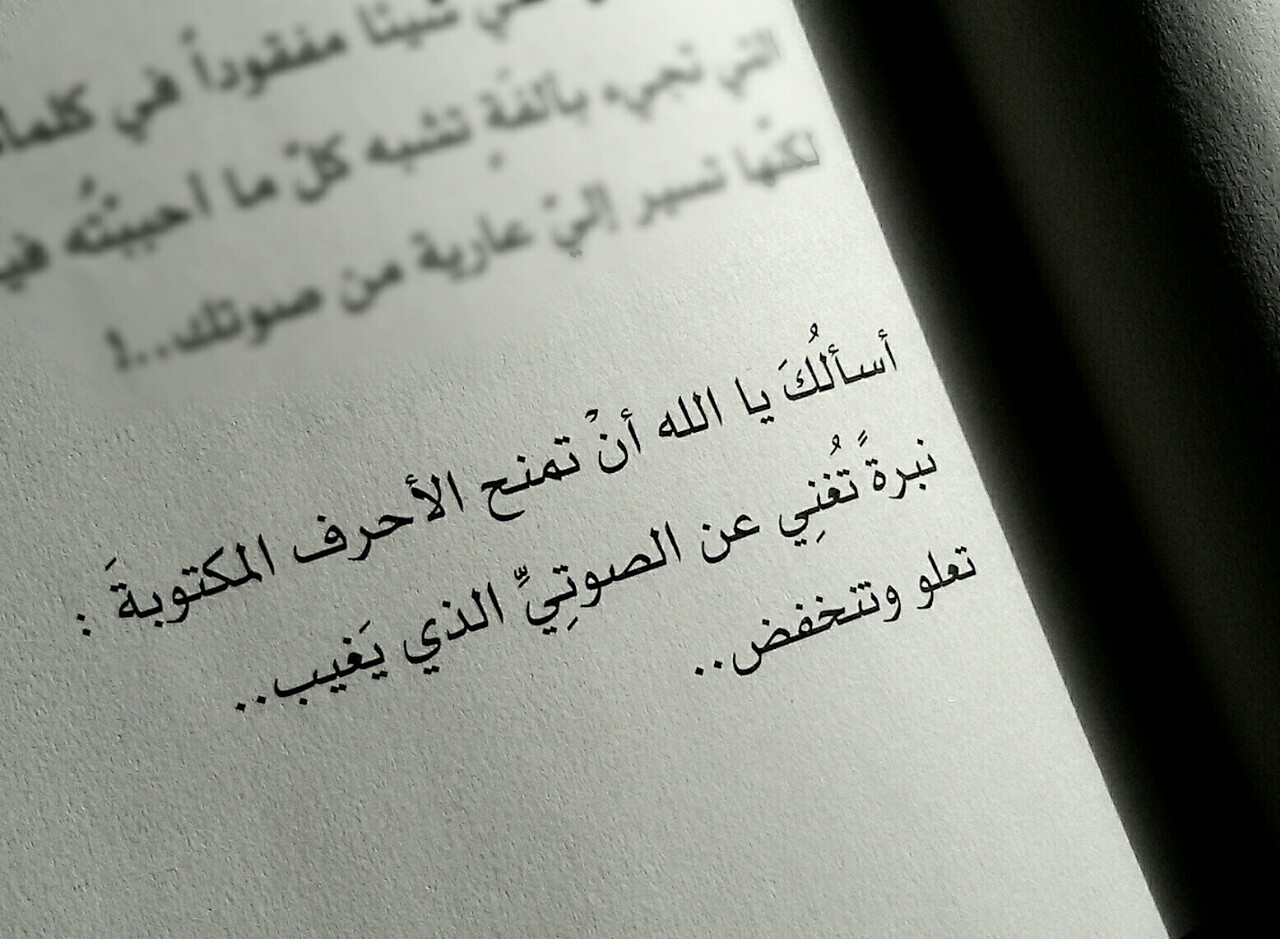 شيئا مفقوداً في
التي تجيء بألفةٍ تشبه كلّ ما أحببتُه
لكنّها تسير إليّ عارية من صوتك..!
أسألُكَ يا الله أنْ تمنح الأحرف المكتوبةَ :
نبرةً تُغنِي عن الصوتِيِّ الذي يَغيب..
تعلو وتنخفض..